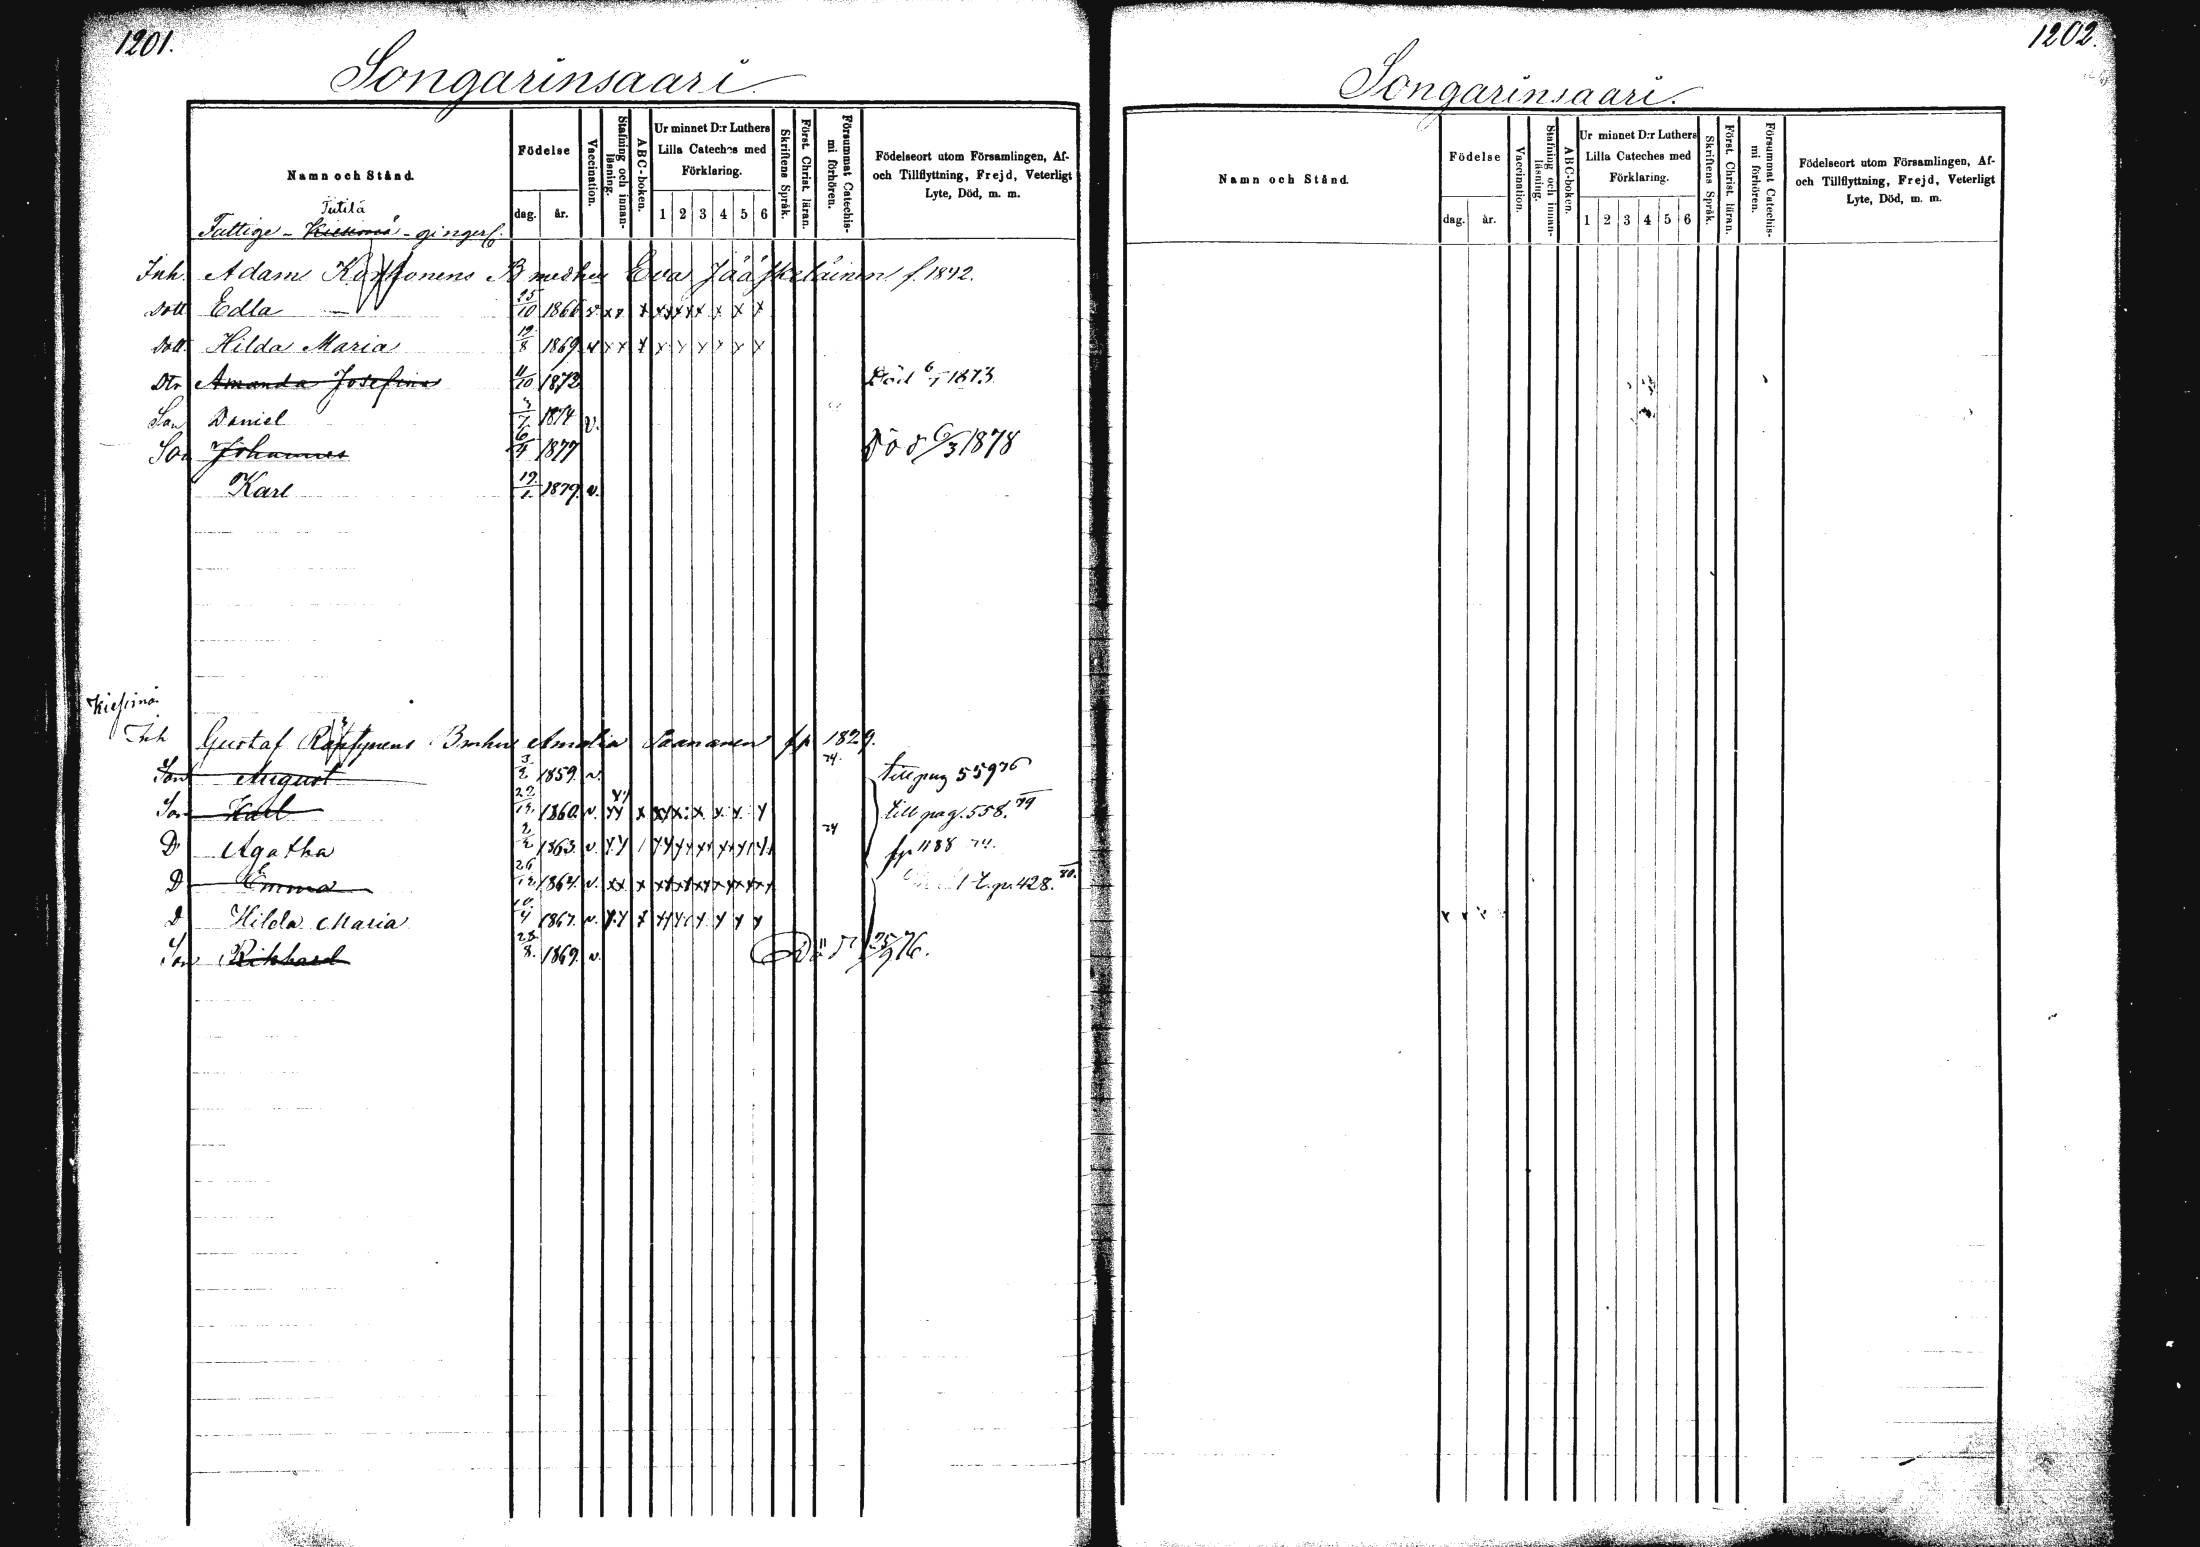 1201.
Songarinsaari.
Namn och Stånd.
Födelse
dag. år.
Vaccination.
Stafning och innanläsning.
ABC-boken.
Ur minnet D:r Luthers Lilla Cateches med Förklaring.
1 2 3 4 5 6
Skriftens Språk.
Först. Christ. läran.
Försummat Catechismi förhören.
Födelseort utom Församlingen, Af- och Tillflyttning, Frejd, Veterligt Lyte, Död, m. m.
Fattige -
Inh. Adam Korhonens Eva Jääskeläinen f. 1842.
Dott Edla 25/10 1866 v xx x xxxxx x x x
Dott. Hilda Maria 19/8 1869 v xx x x x x x x x
Dtr Amanda Josefina 11/10 1872 Död 1873
Son Daniel 3/7 1874 v.
Son Johannes 6/4 1877 Död 6/3 1878
Karl 19/1 1879. v.
Inh Gustaf Amalia Paananen fp 1829.
Son August 3/2 1859. v. 74. till pag 559 76
Son Karl 22/12 1860. v. xx x xxx x x x x till pag. 558. 79
D Agatha 2/2 1863. v. 74 fp 1188 74.
D Emma 26/12 1864. v. xx x 428. 80.
D Hilda Maria 10/4 1867. v. xx x
Son Rikhard 28/8. 1869. v. Död 25/9 76.
1202.
Songarinsaari.
Namn och Stånd.
Födelse
dag. år.
Vaccination.
Stafning och innanläsning.
ABC-boken.
Ur minnet D:r Luthers Lilla Cateches med Förklaring.
1 2 3 4 5 6
Skriftens Språk.
Först. Christ. läran.
Försummat Catechismi förhören.
Födelseort utom Församlingen, Af- och Tillflyttning, Frejd, Veterligt Lyte, Död, m. m.